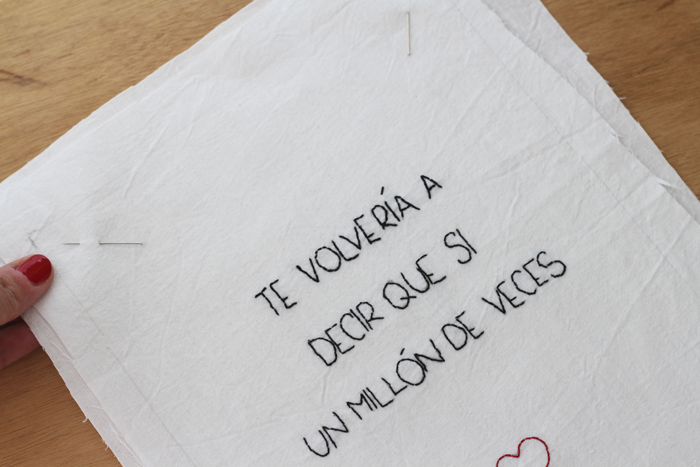 TE VOLVERÍA A
DECIR QUE SI
UN MILLÓN DE VECES